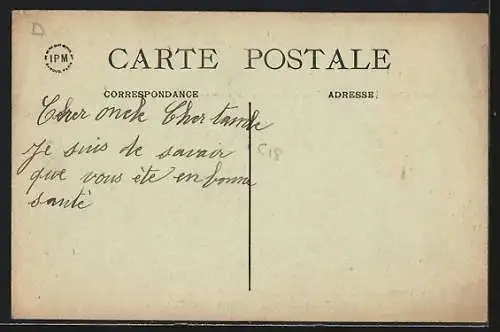 D
IPM
CARTE POSTALE
CORRESPONDANCE
ADRESSE
Cher oncle Cher tante
Je suis de savair
que vous ète en bonne
santé
C18